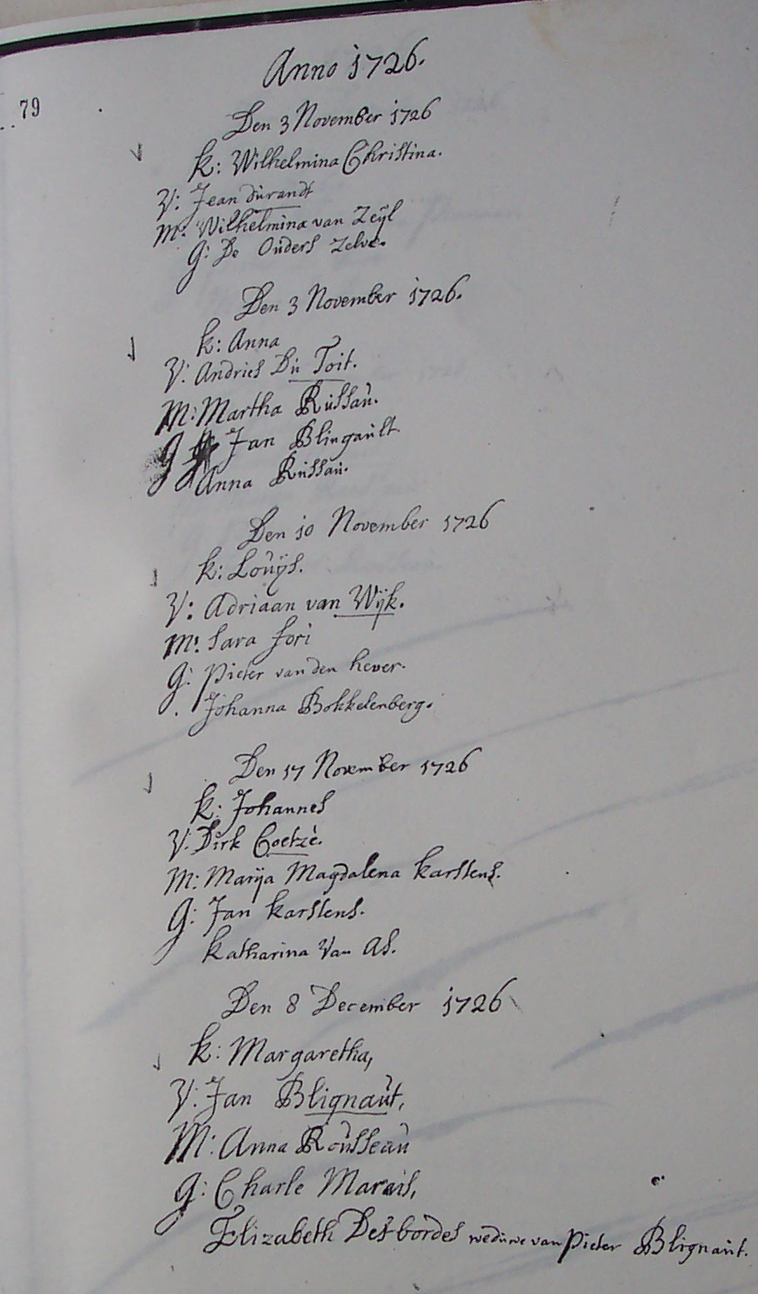 Anno 1726.
79
Den 3 November 1726
k: Wilhelmina Christina.
V: Jean durandt
M: Wilhelmina van Zeijl
G: De Ouders zelve.
Den 3 November 1726.
k: Anna
V: Andries Du Toit.
M: Martha Russau.
G Jan Blingault
Anna Russau.
Den 10 November 1726
k: Louijs.
V: Adriaan van Wijk.
M: Sara fori
G: Pieter van den hever.
Johanna Bokkelenberg.
Den 17 November 1726
k: Johannes
V: Dirk Coetzè.
M: Marija Magdalena karstens.
G: Jan karstens.
katharina Van As.
Den 8 December 1726
k: Margaretha,
V: Jan Blignaut,
M: Anna Rousseau
G: Charle Marais,
Elizabeth Desbordes weduwe van Pieter Blignaut.